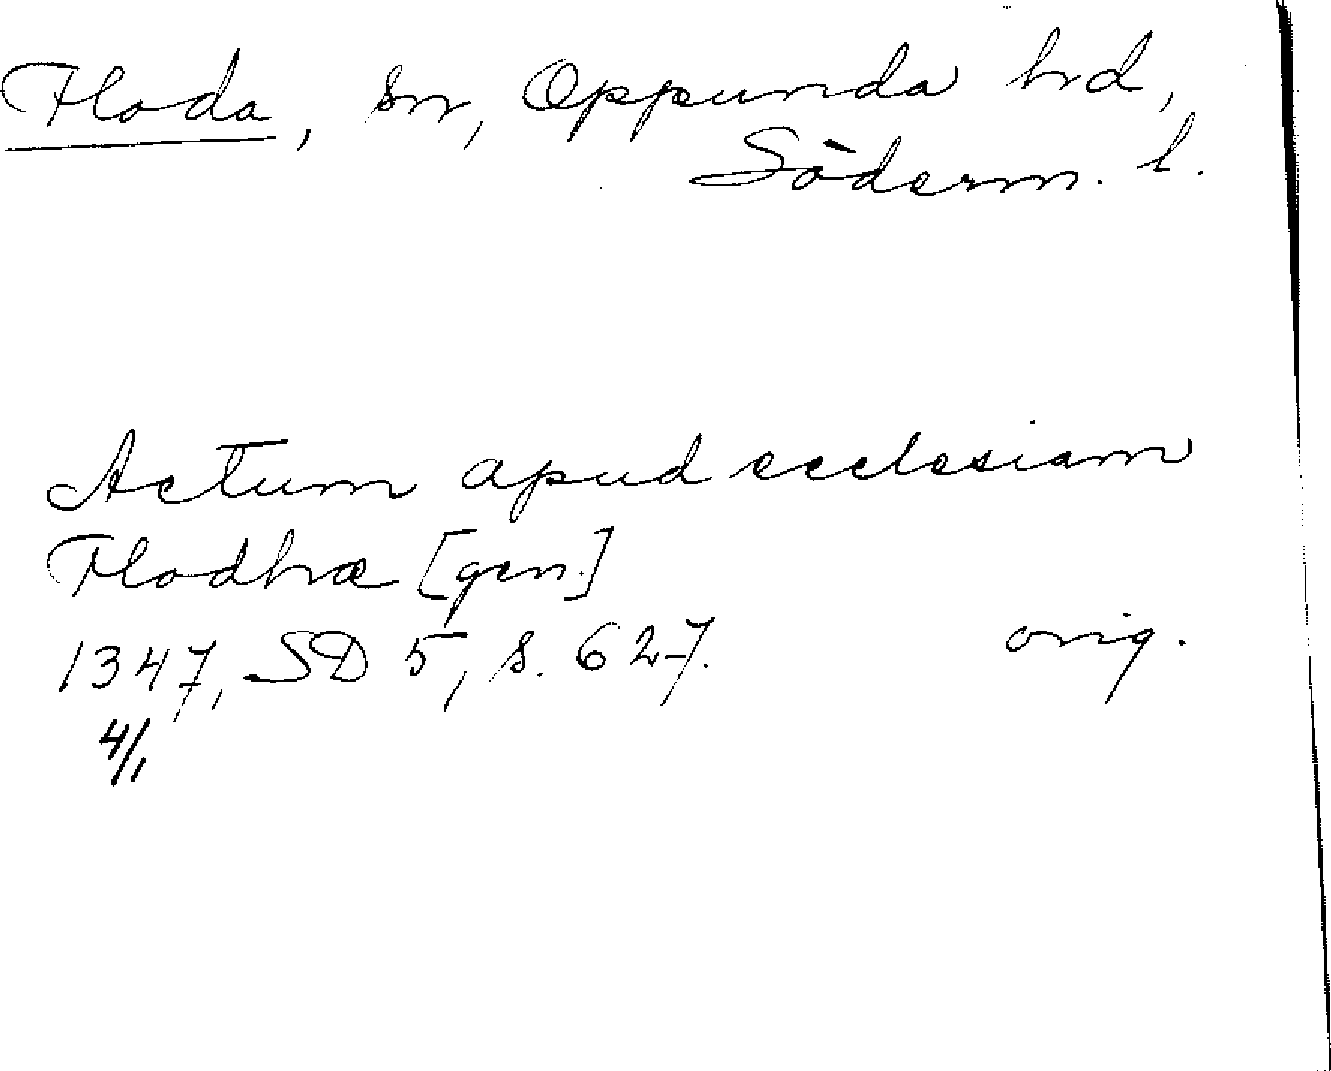 Floda, sn, Oppunda hd,
Söderm. l.
Actum apud ecclesiam
Flodhræ [gen.]
1347, SD 5, s. 627. orig.
4/1